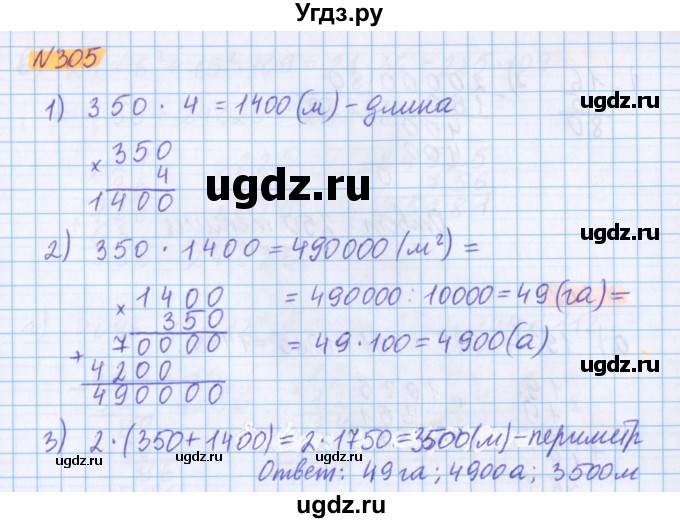 Угдз.ру
N 305
1) 350 · 4 = 1400 (м) - длина
× 350
4
1400
ugdz.ru
ugdz.ru
ugdz.ru
2) 350 · 1400 = 490000 (м²) =
× 1400
350
+ 70000
4200
490000
= 490000 : 10000 = 49 (га) =
= 49 · 100 = 4900 (а)
ugdz.ru
3) 2 · (350 + 1400) = 2 · 1750 = 3500 (м) - периметр
ugdz.ru
ugdz.ru
ugdz.ru
Ответ: 49 га; 4900 а; 3500 м
ugdz.ru
ugdz.ru
ugdz.ru